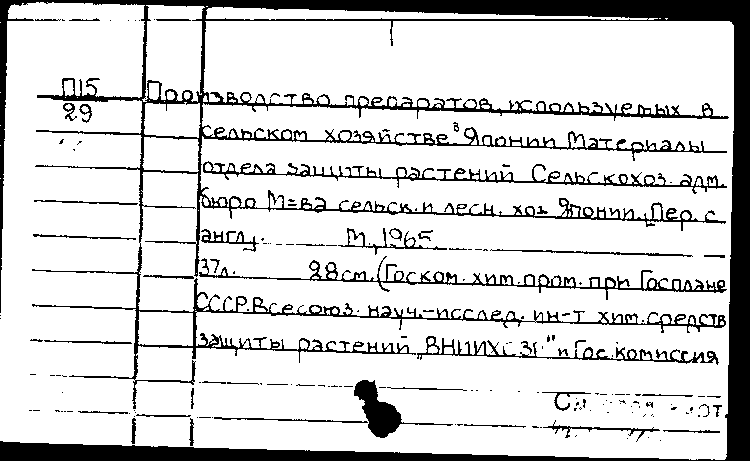 П15
29
Производство препаратов, используемых в
сельском хозяйстве в Японии Материалы
отдела защиты растений Сельскохоз. адм.
бюро М=ва сельск. и лесн. хоз Японии. Пер. с
англ. М., 1965.
37л. 28 см. (Госком. хим. пром. при Госплане
СССР. Всесоюз. науч.-исслед. ин-т хим. средств
защиты растений „ВНИИХСЗР" и Гос. комиссия
См.